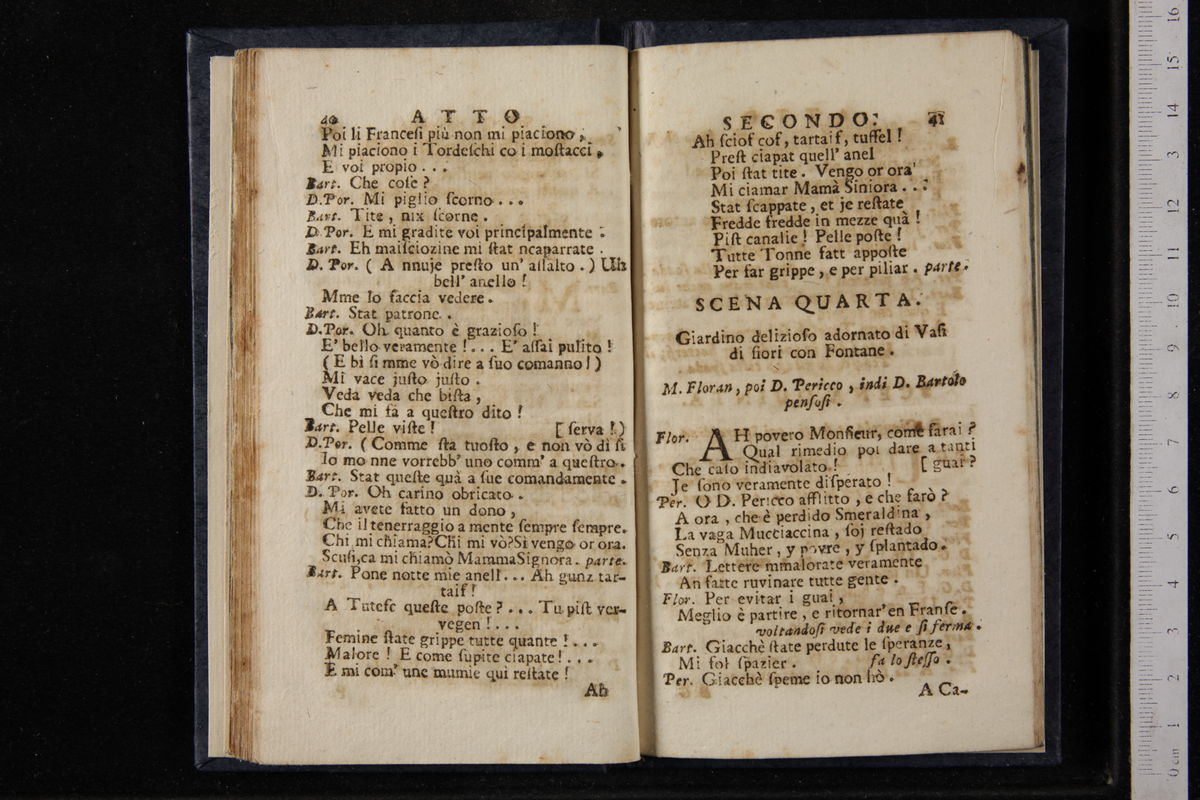 40 ATTO
Poi li Franceſi più non mi piaciono,
Mi piaciono i Tordeſchi co i moſtacci,
E voi propio...
Bart. Che coſe?
D.Por. Mi piglio ſcorno...
Bart. Tite, nix ſcorne.
D. Por. E mi gradite voi principalmente.
Bart. Eh maiſciozine mi ſtat ncaparrate.
D. Por. (A nnuje preſto un' aſſalto.) Uh
bell' anello!
Mme lo faccia vedere.
Bart. Stat patrone.
D.Por. Oh quanto è grazioſo!
E' bello veramente!... E' aſſai pulito!
(E bì ſi mme vò dire a ſuo comanno!)
Mi vace juſto juſto.
Veda veda che biſta,
Che mi fà a queſtro dito!
Bart. Pelle viſte! [ſerva!)
D.Por. (Comme ſta tuoſto, e non vò dì ſi
Io mo nne vorrebb' uno comm' a queſtro.
Bart. Stat queſte quà a ſue comandamente.
D. Por. Oh carino obricato.
Mi avete fatto un dono,
Che il tenerraggio a mente ſempre ſempre.
Chi mi chiama? Chi mi vò? Sì vengo or ora.
Scuſi, ca mi chiamò MammaSignora. parte.
Bart. Pone notte mie anell... Ah gunz tar-
taif!
A Tuteſe queſte poſte?... Tu piſt ver-
vegen!...
Femine ſtate grippe tutte quante!...
Malore! E come ſupite ciapate!...
E mi com' une mumie qui reſtate!
Ah
SECONDO. 41
Ah ſciof cof, tartaif, tuffel!
Preſt ciapat quell' anel
Poi ſtat tite. Vengo or ora
Mi ciamar Mamà Siniora...
Stat ſcappate, et je reſtate
Fredde fredde in mezze quà!
Piſt canalie! Pelle poſte!
Tutte Tonne fatt appoſte
Per far grippe, e per piliar. parte.
SCENA QUARTA.
Giardino delizioſo adornato di Vaſi
di fiori con Fontane.
M. Floran, poi D. Pericco, indi D. Bartolo
penſoſi.
Flor. AH povero Monſieur, come farai?
Qual rimedio poi dare a tanti
Che caſo indiavolato! [guai?
Je ſono veramente diſperato!
Per. O D. Pericco afflitto, e che farò?
A ora, che è perdido Smeraldina,
La vaga Mucciaccina, ſoj reſtado
Senza Muher, y povre, y ſplantado.
Bart. Lettere mmalorate veramente
An fatte ruvinare tutte gente.
Flor. Per evitar i guai,
Meglio è partire, e ritornar' en Franſe.
voltandoſi vede i due e ſi ferma.
Bart. Giacchè ſtate perdute le ſperanze,
Mi fol ſpazier. fa lo ſteſſo.
Per. Giacchè ſpeme io non hò.
A Ca-
0 cm 1 2 3 4 5 6 7 8 9 10 11 12 13 14 15 16